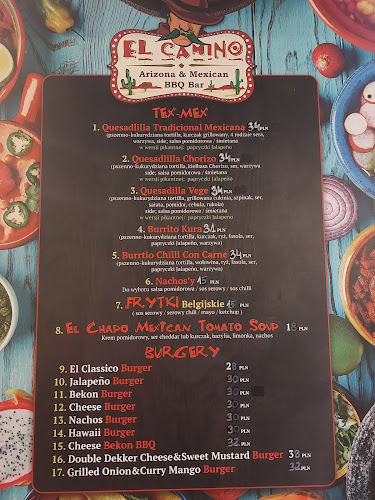 EL CAMINO
Arizona & Mexican
BBQ Bar
TEX-MEX
1. Quesadlilla Tradicional Mexicana 34 PLN
(pszenno-kukurydziana tortilla, kurczak grillowany, 4 rodzaje sera,
warzywa, side; salsa pomidorowa / śmietana
w wersji pikantnej: papryczki Jalapeño
2. Quesadlilla Chorizo 34 PLN
(pszenno-kukurydziana tortilla, kiełbasa Chorizo, ser, warzywa
side; salsa pomidorowa / śmietana
w wersji pikantnej: papryczki Jalapeño
3. Quesadilla Vege 34 PLN
(pszenno-kukurydziana tortilla, grillowana cukinia, szpinak, ser,
sałata, pomidor, cebula, rukola)
side; salsa pomidorowa / śmietana
w wersji pikantnej: papryczki Jalapeño
4. Burrito Kura 34 PLN
(pszenno-kukurydziana tortilla, kurczak, ryż, fasola, ser,
papryczki Jalapeño, warzywa)
5. Burrtio Chilli Con Carne 34 PLN
(pszenno-kukurydziana tortilla, wołowina, ryż, fasola, ser,
papryczki Jalapeño, warzywa)
6. Nachos'y 15 PLN
Do wyboru salsa pomidorowa / sos serowy / sos chilli
7. FRYTKI Belgijskie 15 PLN
( sos serowy / serowy chilli / mayo / ketchup )
8. El Chapo Mexican Tomato Soup 18 PLN
Krem pomidorowy, ser cheddar lub kurczak, bazylia, limonka, nachos
BURGERY
9. El Classico Burger 28 PLN
10. Jalapeño Burger 30 PLN
11. Bekon Burger 30 PLN
12. Cheese Burger 30 PLN
13. Nachos Burger 30 PLN
14. Hawaii Burger 30 PLN
15. Cheese Bekon BBQ 32 PLN
16. Double Dekker Cheese&Sweet Mustard Burger 38 PLN
17. Grilled Onion&Curry Mango Burger 32 PLN